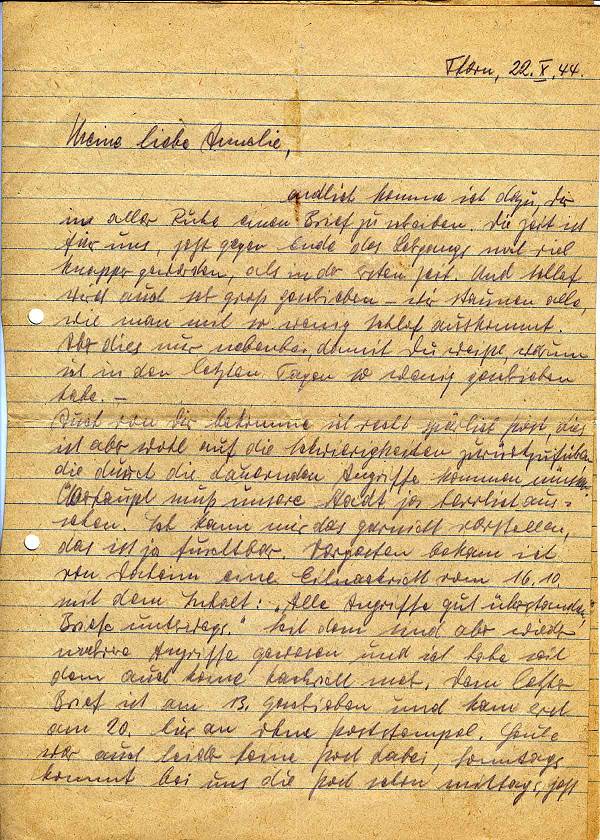 Thorn, 22.X.44.
Meine liebe Annelie,
endlich komme ich dazu, Dir
in aller Ruhe einen Brief zu schreiben. Die Zeit ist
für uns, jetzt gegen Ende des Lehrgangs viel
knapper geworden, als in der ersten Zeit. Und Schlaf
wird auch groß geschrieben – wir staunen alle,
wie man mit so wenig Schlaf auskommt.
Aber dies nur nebenbei, damit Du weißt, warum
ich in den letzten Tagen so wenig geschrieben
habe. –
Auch von Dir bekomme ich recht spärlich Post, dies
ist aber wohl auf die Schwierigkeiten zurückzuführen
die durch die dauernden Angriffe kommen müssen.
Überhaupt muß unsere Stadt ja aus-
sehen. Ich kann mir das garnicht vorstellen,
das ist ja furchtbar. Vorgestern bekam ich
von daheim eine Eilnachricht vom 16.10.
mit dem Inhalt: „Alle Angriffe gut überstanden,
Briefe unterwegs." Seit dem sind aber wieder
mehrere Angriffe gewesen und ich habe seit
dem auch keine Nachricht mehr. Dein letzter
Brief ist am 13. geschrieben und kam erst
am 20. hier an ohne Poststempel. Heute
war auch leider keine Post dabei, Sonntags
kommt bei uns die Post schon mittags, jetzt